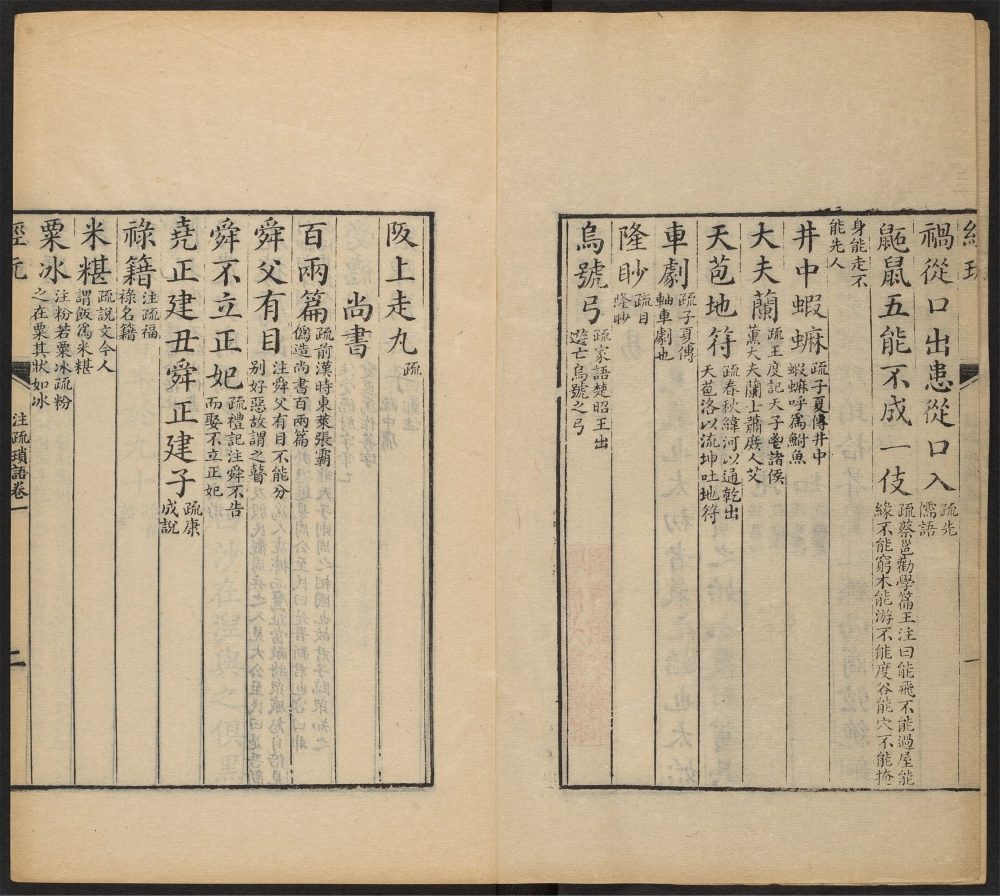 禍從口出患從口入 疏先儒語
鼫鼠五能不成一伎 疏蔡邕勸學篇王注曰能飛不能過屋能緣不能窮木能游不能度谷能穴不能掩
身能走不能先人
井中蝦蟆 疏子夏傳井中蝦蟆呼爲鮒魚
大夫蘭 疏王度記天子鬯諸侯薰大夫蘭士蕭庶人艾
天苞地符 疏春秋緯河以通乾出天苞洛以流坤吐地符
車劇 疏子夏傳軸車劇也
隆眇 疏目隆眇
烏號弓 疏家語楚昭王出遊亡烏號之弓
阪上走丸 疏
尚書
百兩篇 疏前漢時東萊張霸僞造尚書百兩篇
舜父有目 注舜父有目不能分別好惡故謂之瞽
舜不立正妃 疏禮記注舜不告而娶不立正妃
堯正建丑舜正建子 疏康成說
祿籍 注疏福祿名籍
米糂 疏說文今人謂飯爲米糂
粟冰 注粉若粟冰疏粉之在粟其狀如冰
注疏瑣語卷一
二